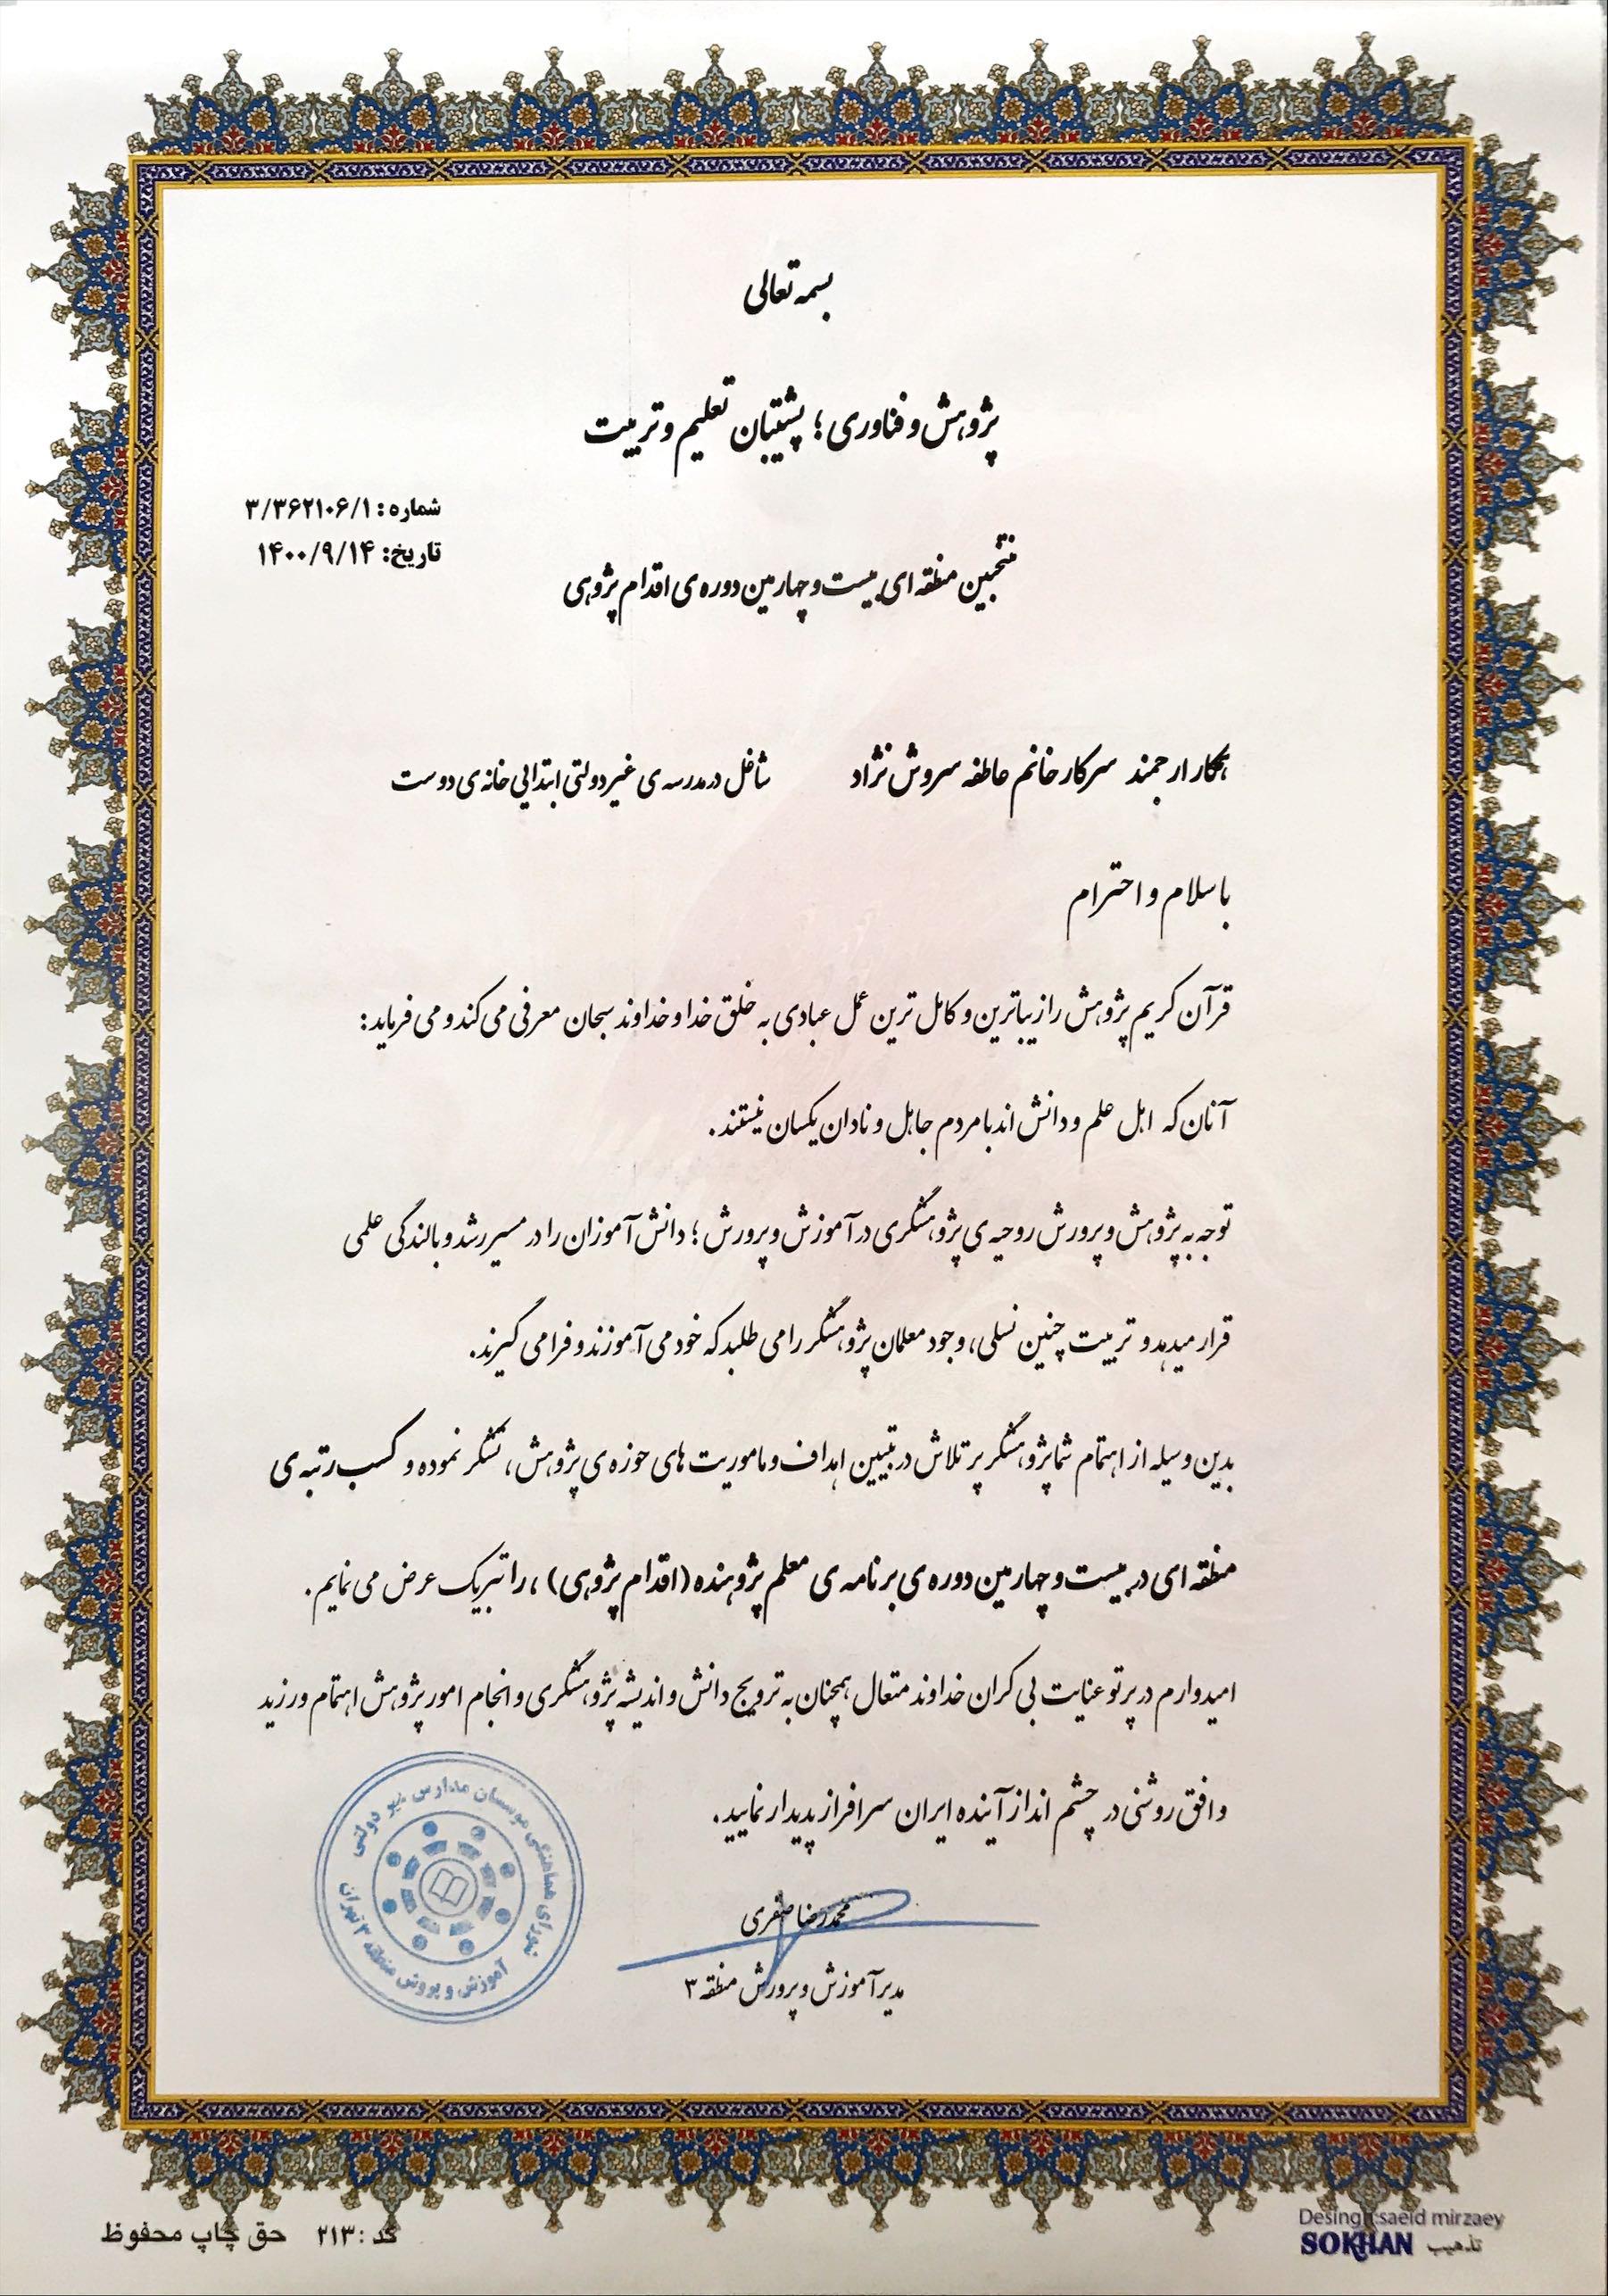 بسمه تعالی
پژوهش و فناوری؛ پشتیبان تعلیم و تربیت
شماره: ۳/۳۶۲۱۰۶/۱
تاریخ: ۱۴۰۰/۹/۱۴
منتخبین منطقه ای بیست و چهارمین دوره ی اقدام پژوهی
همکار ارجمند سرکار خانم عاطفه سروش نژاد شاغل در مدرسه ی غیر دولتی ابتدایی خانه ی دوست
با سلام و احترام
قرآن کریم پژوهش را زیباترین و کامل ترین عمل عبادی به خلق خدا و خداوند سبحان معرفی می کند و می فرماید:
آنان که اهل علم و دانش اند با مردم جاهل و نادان یکسان نیستند.
توجه به پژوهش و پرورش روحیه ی پژوهشگری در آموزش و پرورش؛ دانش آموزان را در مسیر رشد و بالندگی علمی
قرار میدهد و تربیت چنین نسلی، وجود معلمان پژوهشگر را می طلبد که خود می آموزند و فرا می گیرند.
بدین وسیله از اهتمام شما پژوهشگر پر تلاش در تبیین اهداف و ماموریت های حوزه ی پژوهش، تشکر نموده و کسب رتبه ی
منطقه ای در بیست و چهارمین دوره ی برنامه ی معلم پژوهنده (اقدام پژوهی)، را تبریک عرض می نمایم.
امیدوارم در پرتو عنایت بی کران خداوند متعال همچنان به ترویج دانش و اندیشه پژوهشگری و انجام امور پژوهش اهتمام ورزید
و افق روشنی در چشم انداز آینده ایران سرافراز پدیدار نمایید.
محمدرضا صفری
مدیر آموزش و پرورش منطقه ۳
شورای هماهنگی موسسان مدارس غیر دولتی
آموزش و پرورش منطقه ۳ تهران
کد: ۲۱۳ حق چاپ محفوظ
Desing: saeid mirzaey
SOKHAN تذهیب